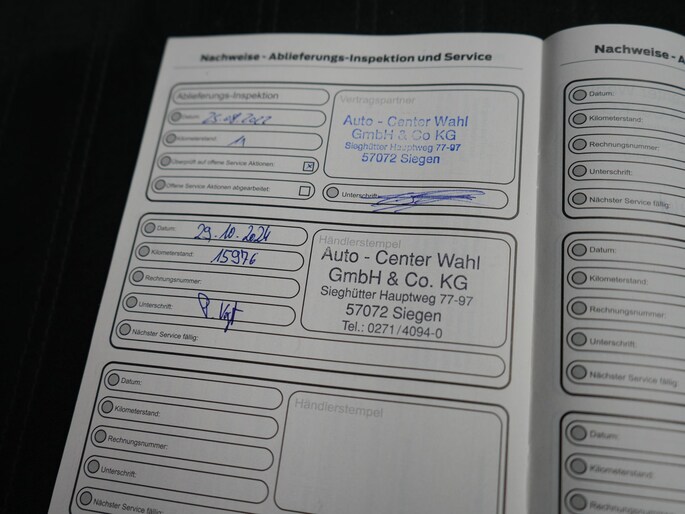 Nachweise - Ablieferungs-Inspektion und Service
Ablieferungs-Inspektion
Datum:
Kilometerstand: 1
Überprüft auf offene Service Aktionen:
Offene Service Aktionen abgearbeitet:
Vertragspartner
Auto - Center Wahl
GmbH & Co KG
Sieghütter Hauptweg 77-97
57072 Siegen
Unterschrift:
Datum: 29.10.2024
Kilometerstand: 15976
Rechnungsnummer:
Unterschrift:
Nächster Service fällig:
Händlerstempel
Auto - Center Wahl
GmbH & Co. KG
Sieghütter Hauptweg 77-97
57072 Siegen
Tel.: 0271/4094-0
Datum:
Kilometerstand:
Rechnungsnummer:
Unterschrift:
Nächster Service fällig:
Händlerstempel
Nachweise - A
Datum:
Kilometerstand:
Rechnungsnummer:
Unterschrift:
Nächster Service fällig:
Datum:
Kilometerstand:
Rechnungsnummer:
Unterschrift:
Nächster Service fällig:
Datum:
Kilometerstand:
Rechnungsnummer: